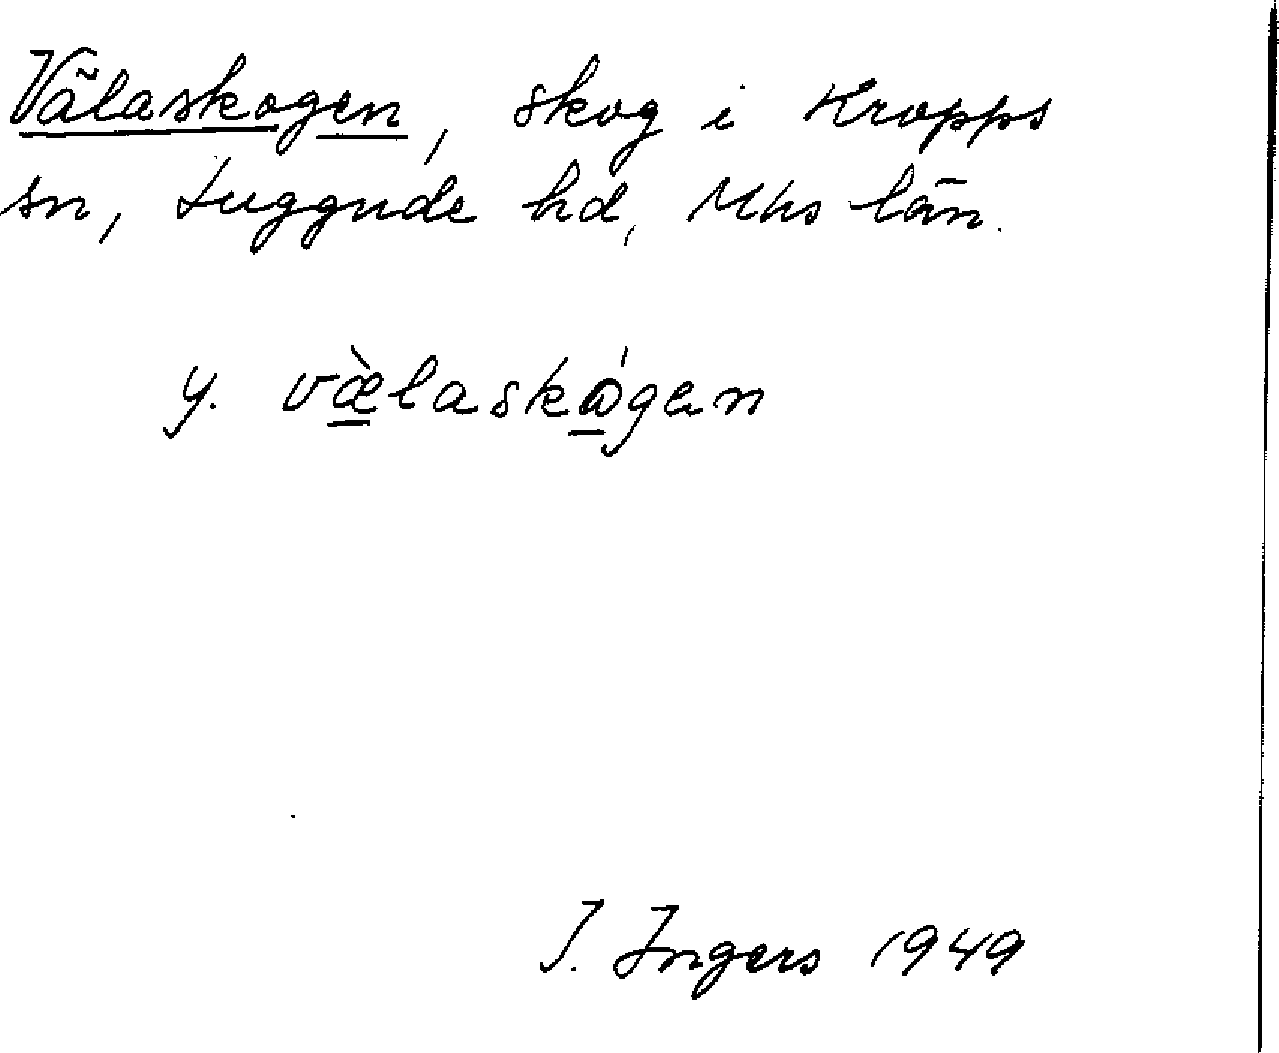 Välaskogen, skog i Kropps
sn, Luggude hd, Mhs län.
y. væ̀laskógen
I. Ingers 1949